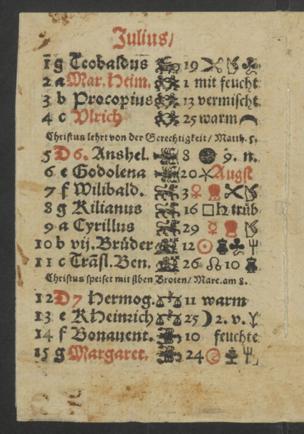 Julius/
1 g Teobaldus 19
2 a Mar. Heim. 1 mit feucht
3 b Procopius 13 vermischt
4 c Vlrich 25 warm
Christus lehrt von der Gerechtigkeit/ Matth. 5.
5 D 6. Anshel. 8 9. n.
6 e Godolena 20 Augst
7 f Wilibald. 3 ♀
8 g Kilianus 16 □ ♄ trüb
9 a Cyrillus 29 ☿
10 b vij. Brüder 12 ☉
11 c Trãsl. Ben. 26 ☊ 10
Christus speiset mit siben Broten/ Marc. am 8.
12 D 7 Hermog. 11 warm
13 e K Heinrich 25 ☽ 2. v.
14 f Bonauent. 10 feuchte
15 g Margaret. 24